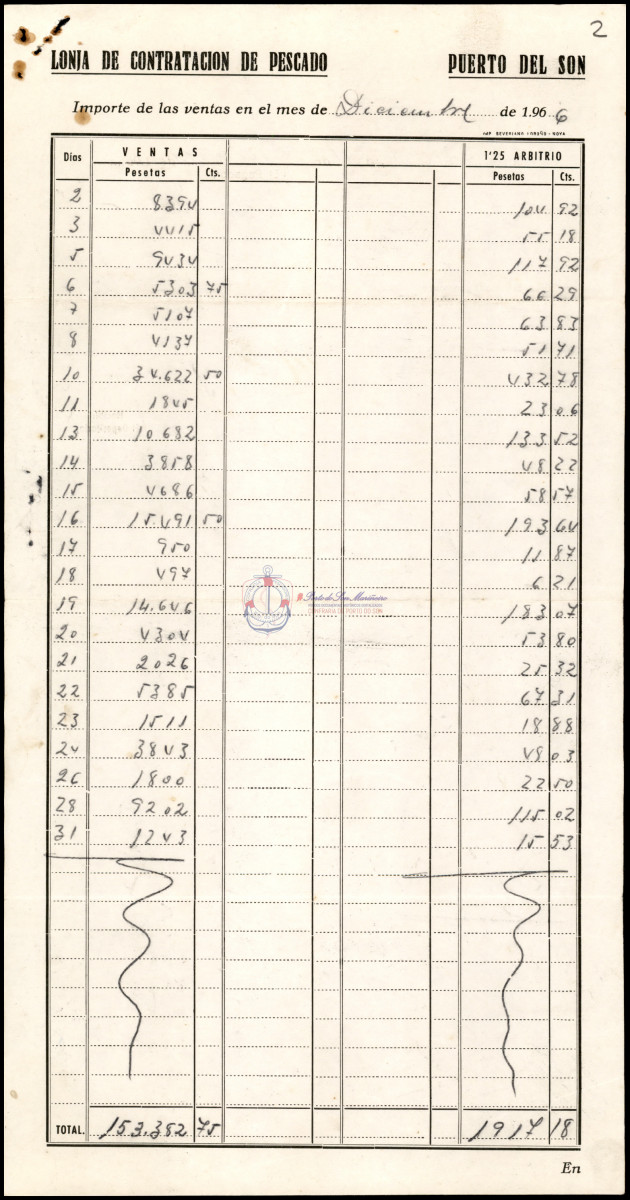 2
LONJA DE CONTRATACION DE PESCADO PUERTO DEL SON
Importe de las ventas en el mes de Diciembre de 1.966
Días VENTAS 1'25 ARBITRIO
Pesetas Cts. Pesetas Cts.
2 8394 104 92
3 4415 55 18
5 9434 117 92
6 5303 75 66 29
7 5107 63 83
8 4137 51 71
10 34.622 50 432 78
11 1845 23 06
13 10682 133 52
14 3858 48 22
15 4686 58 57
16 15.491 50 193 64
17 950 11 87
18 497 6 21
Porto do Son Mariñeiro
CONFRARÍA DE PORTO DO SON
19 14.646 183 07
20 4304 53 80
21 2026 25 32
22 5385 67 31
23 1511 18 88
24 3843 48 03
26 1800 22 50
28 9202 115 02
31 1243 15 53
TOTAL. 153.382 75 1917 18
En